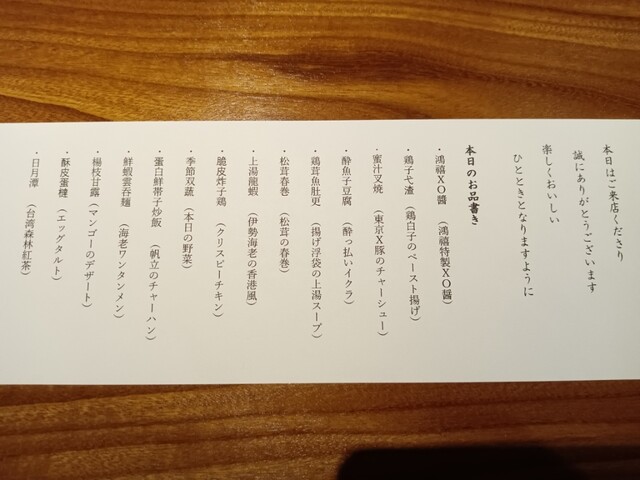 本日はご来店くださり
誠にありがとうございます
楽しくおいしい
ひとときとなりますように
本日のお品書き
・鴻禧XO醤 (鴻禧特製XO醤)
・鶏子戈渣 (鶏白子のペースト揚げ)
・蜜汁叉焼 (東京X豚のチャーシュー)
・酔魚子豆腐 (酔っ払いイクラ)
・鶏茸魚肚更 (揚げ浮袋の上湯スープ)
・松茸春巻 (松茸の春巻)
・上湯龍蝦 (伊勢海老の香港風)
・脆皮炸子鶏 (クリスピーチキン)
・季節双蔬 (本日の野菜)
・蛋白鮮帯子炒飯 (帆立のチャーハン)
・鮮蝦雲呑麺 (海老ワンタンメン)
・楊枝甘露 (マンゴーのデザート)
・酥皮蛋撻 (エッグタルト)
・日月潭 (台湾森林紅茶)